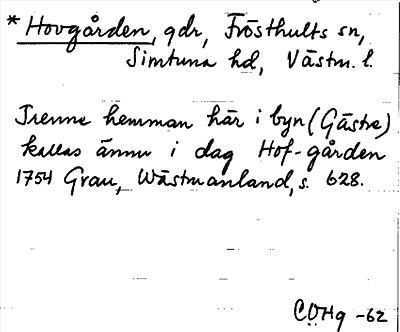 * Hovgården, gdr, Frösthults sn,
Simtuna hd, Västm. l.
Trenne hemman här i byn (Gästre)
kallas ännu i dag Hof-gården
1754 Grau, Wästmanland, s. 628.
COHg -62